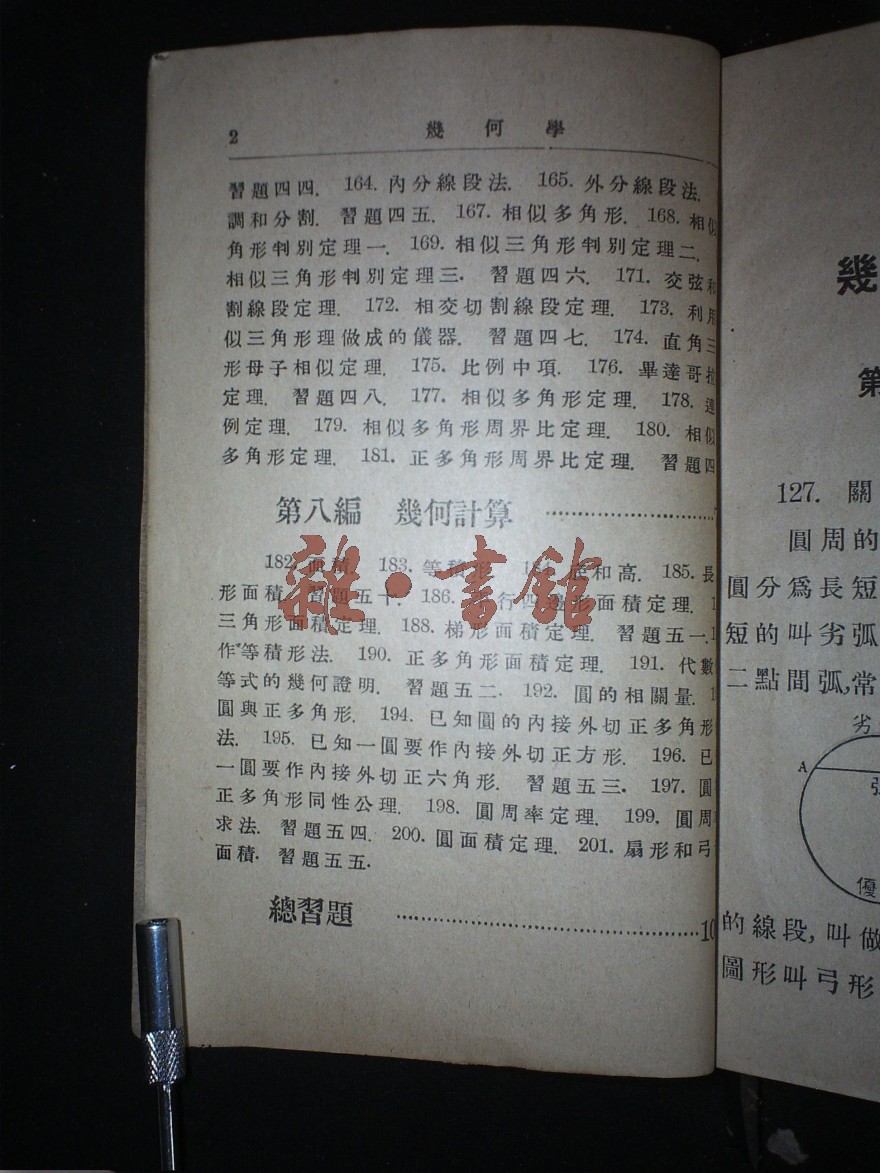 2 幾何學
習題四四. 164. 內分線段法. 165. 外分線段法.
調和分割. 習題四五. 167. 相似多角形. 168. 相似
角形判別定理一. 169. 相似三角形判別定理二.
相似三角形判別定理三. 習題四六. 171. 交弦和
割線段定理. 172. 相交切割線段定理. 173. 利用
似三角形理做成的儀器. 習題四七. 174. 直角三
形母子相似定理. 175. 比例中項. 176. 畢達哥拉
定理. 習題四八. 177. 相似多角形定理. 178. 連
例定理. 179. 相似多角形周界比定理. 180. 相似
多角形定理. 181. 正多角形周界比定理. 習題四
第八編 幾何計算
182. 面積. 183. 等積形. 184. 底和高. 185. 長
形面積. 習題五十. 186. 平行四邊形面積定理. 1
三角形面積定理. 188. 梯形面積定理. 習題五一. 1
作等積形法. 190. 正多角形面積定理. 191. 代數
等式的幾何證明. 習題五二. 192. 圓的相關量. 1
圓與正多角形. 194. 已知圓的內接外切正多角形
法. 195. 已知一圓要作內接外切正方形. 196. 已
一圓要作內接外切正六角形. 習題五三. 197. 圓
正多角形同性公理. 198. 圓周率定理. 199. 圓周
求法. 習題五四. 200. 圓面積定理. 201. 扇形和弓
面積. 習題五五.
總習題 10
雜·書館
幾
第
127. 關
圓周的
圓分爲長短
短的叫劣弧
二點間弧,常
劣
A
弦
優
的線段,叫做
圖形叫弓形